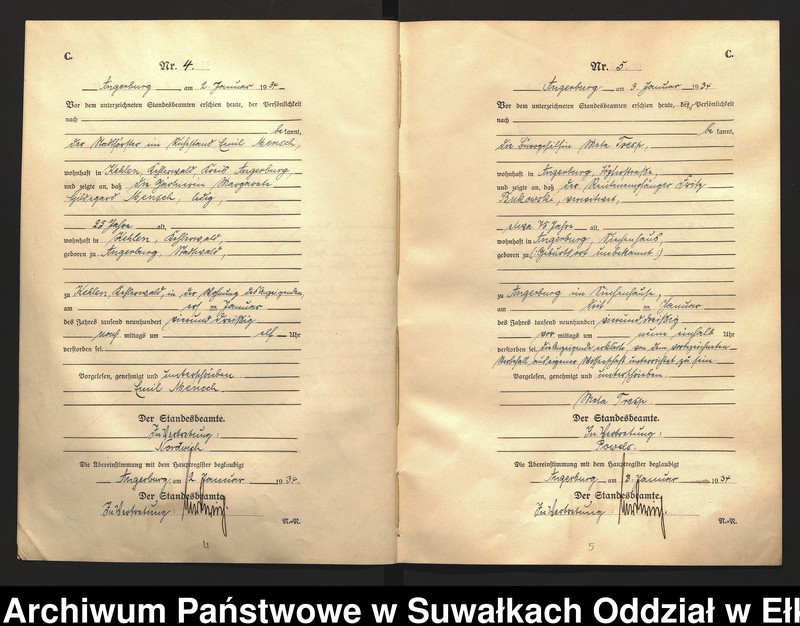 C.
Nr. 4.
Angerburg am 2. Januar 1934
Vor dem unterzeichneten Standesbeamten erschien heute, der Persönlichkeit
nach
bekannt,
der Stadtförster im Ruhestand Emil Mensch,
wohnhaft in Kehlen, Kreis Angerburg,
und zeigte an, daß die Gärtnerin Margarete
Hildegard Mensch, ledig,
25 Jahre alt,
wohnhaft in Kehlen,
geboren zu Angerburg, Stadtwald,
zu Kehlen, in der Wohnung des Anzeigenden,
am ersten Januar
des Jahres tausend neunhundert vierunddreißig
nachmittags um elf Uhr
verstorben sei.
Vorgelesen, genehmigt und unterschrieben
Emil Mensch
Der Standesbeamte.
In Vertretung:
Die Übereinstimmung mit dem Hauptregister beglaubigt
Angerburg, am 2. Januar 1934
Der Standesbeamte
In Vertretung:
N.-N.
4
C.
Nr. 5.
Angerburg am 3. Januar 1934
Vor dem unterzeichneten Standesbeamten erschien heute, der Persönlichkeit
nach
bekannt,
die Bürogehilfin Meta Tresp,
wohnhaft in Angerburg,
und zeigte an, daß der Rentenempfänger Fritz
verwitwet,
etwa 75 Jahre alt,
wohnhaft in Angerburg, Siechenhaus,
geboren zu (: Geburtsort unbekannt :)
zu Angerburg im Siechenhause,
am Januar
des Jahres tausend neunhundert vierunddreißig
vormittags um neun einhalb Uhr
verstorben sei. Die Anzeigende erklärte von dem vorbezeichneten
Sterbefall aus eigener Wissenschaft unterrichtet zu sein.
Vorgelesen, genehmigt und unterschrieben
Meta Tresp.
Der Standesbeamte.
In Vertretung:
Die Übereinstimmung mit dem Hauptregister beglaubigt
Angerburg, am 3. Januar 1934
Der Standesbeamte
In Vertretung:
N.-N.
5
Archiwum Państwowe w Suwałkach Oddział w Ełk